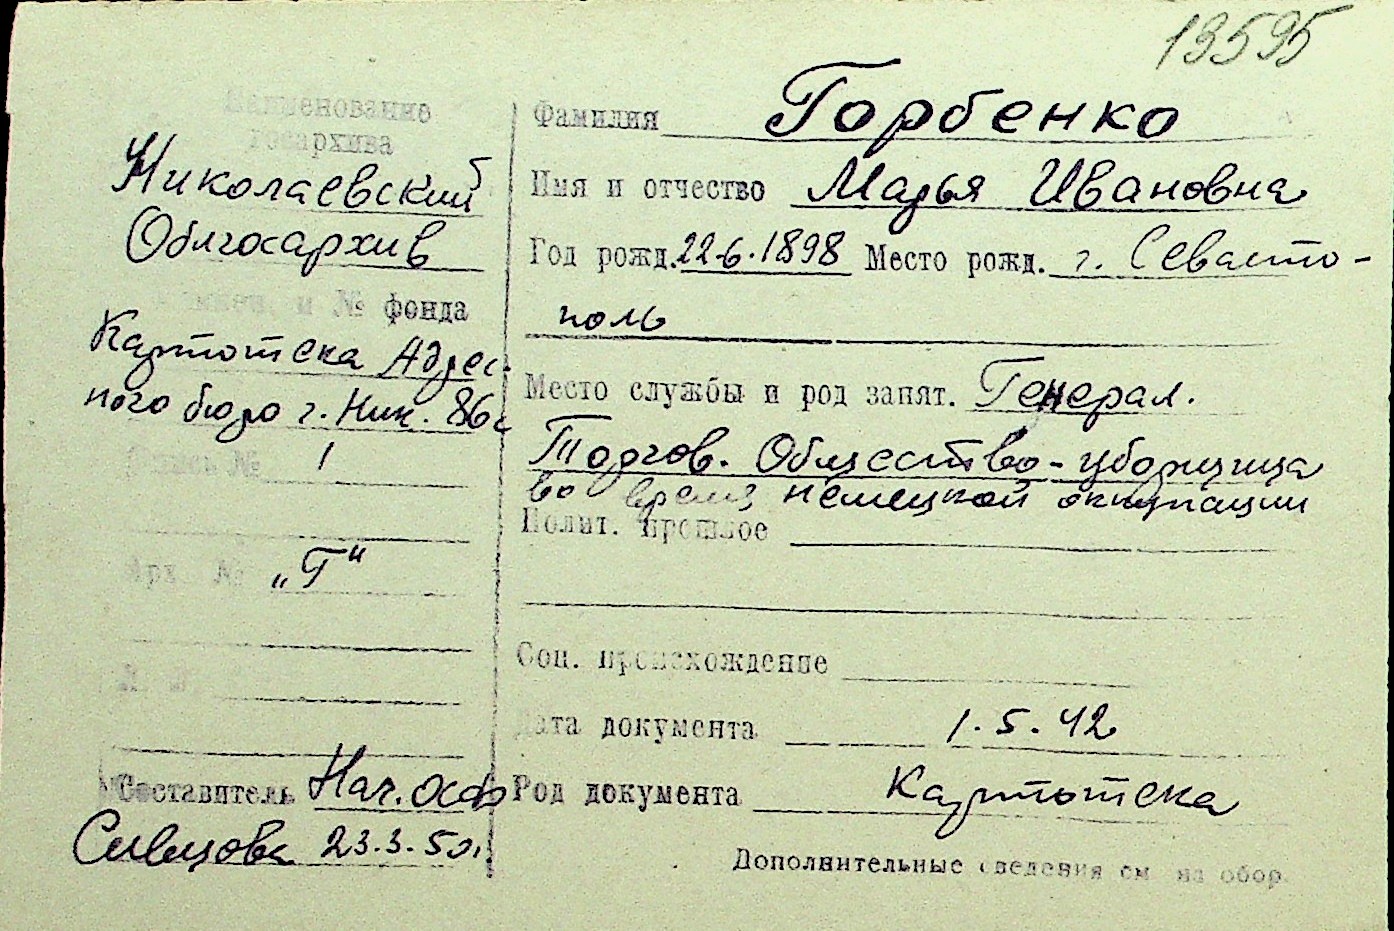 13595
Наименование
госархива
Николаевский
Облгосархив
и № фонда
Картотека Адрес-
ного бюро г. Ник. 86с
Опись № 1
Арх. № „Г“
Составитель Нач. осф
Сивцова 23.3.50г.
Фамилия Горбенко
Имя и отчество Марья Ивановна
Год рожд. 22.6.1898 Место рожд. г. Севасто-
поль
Место службы и род занят. Генерал.
Торгов. Общество - уборщица
во время немецкой оккупации
Полит. прошлое
Соц. происхождение
Дата документа 1.5.42
Род документа Картотека
Дополнительные сведения см на обор.